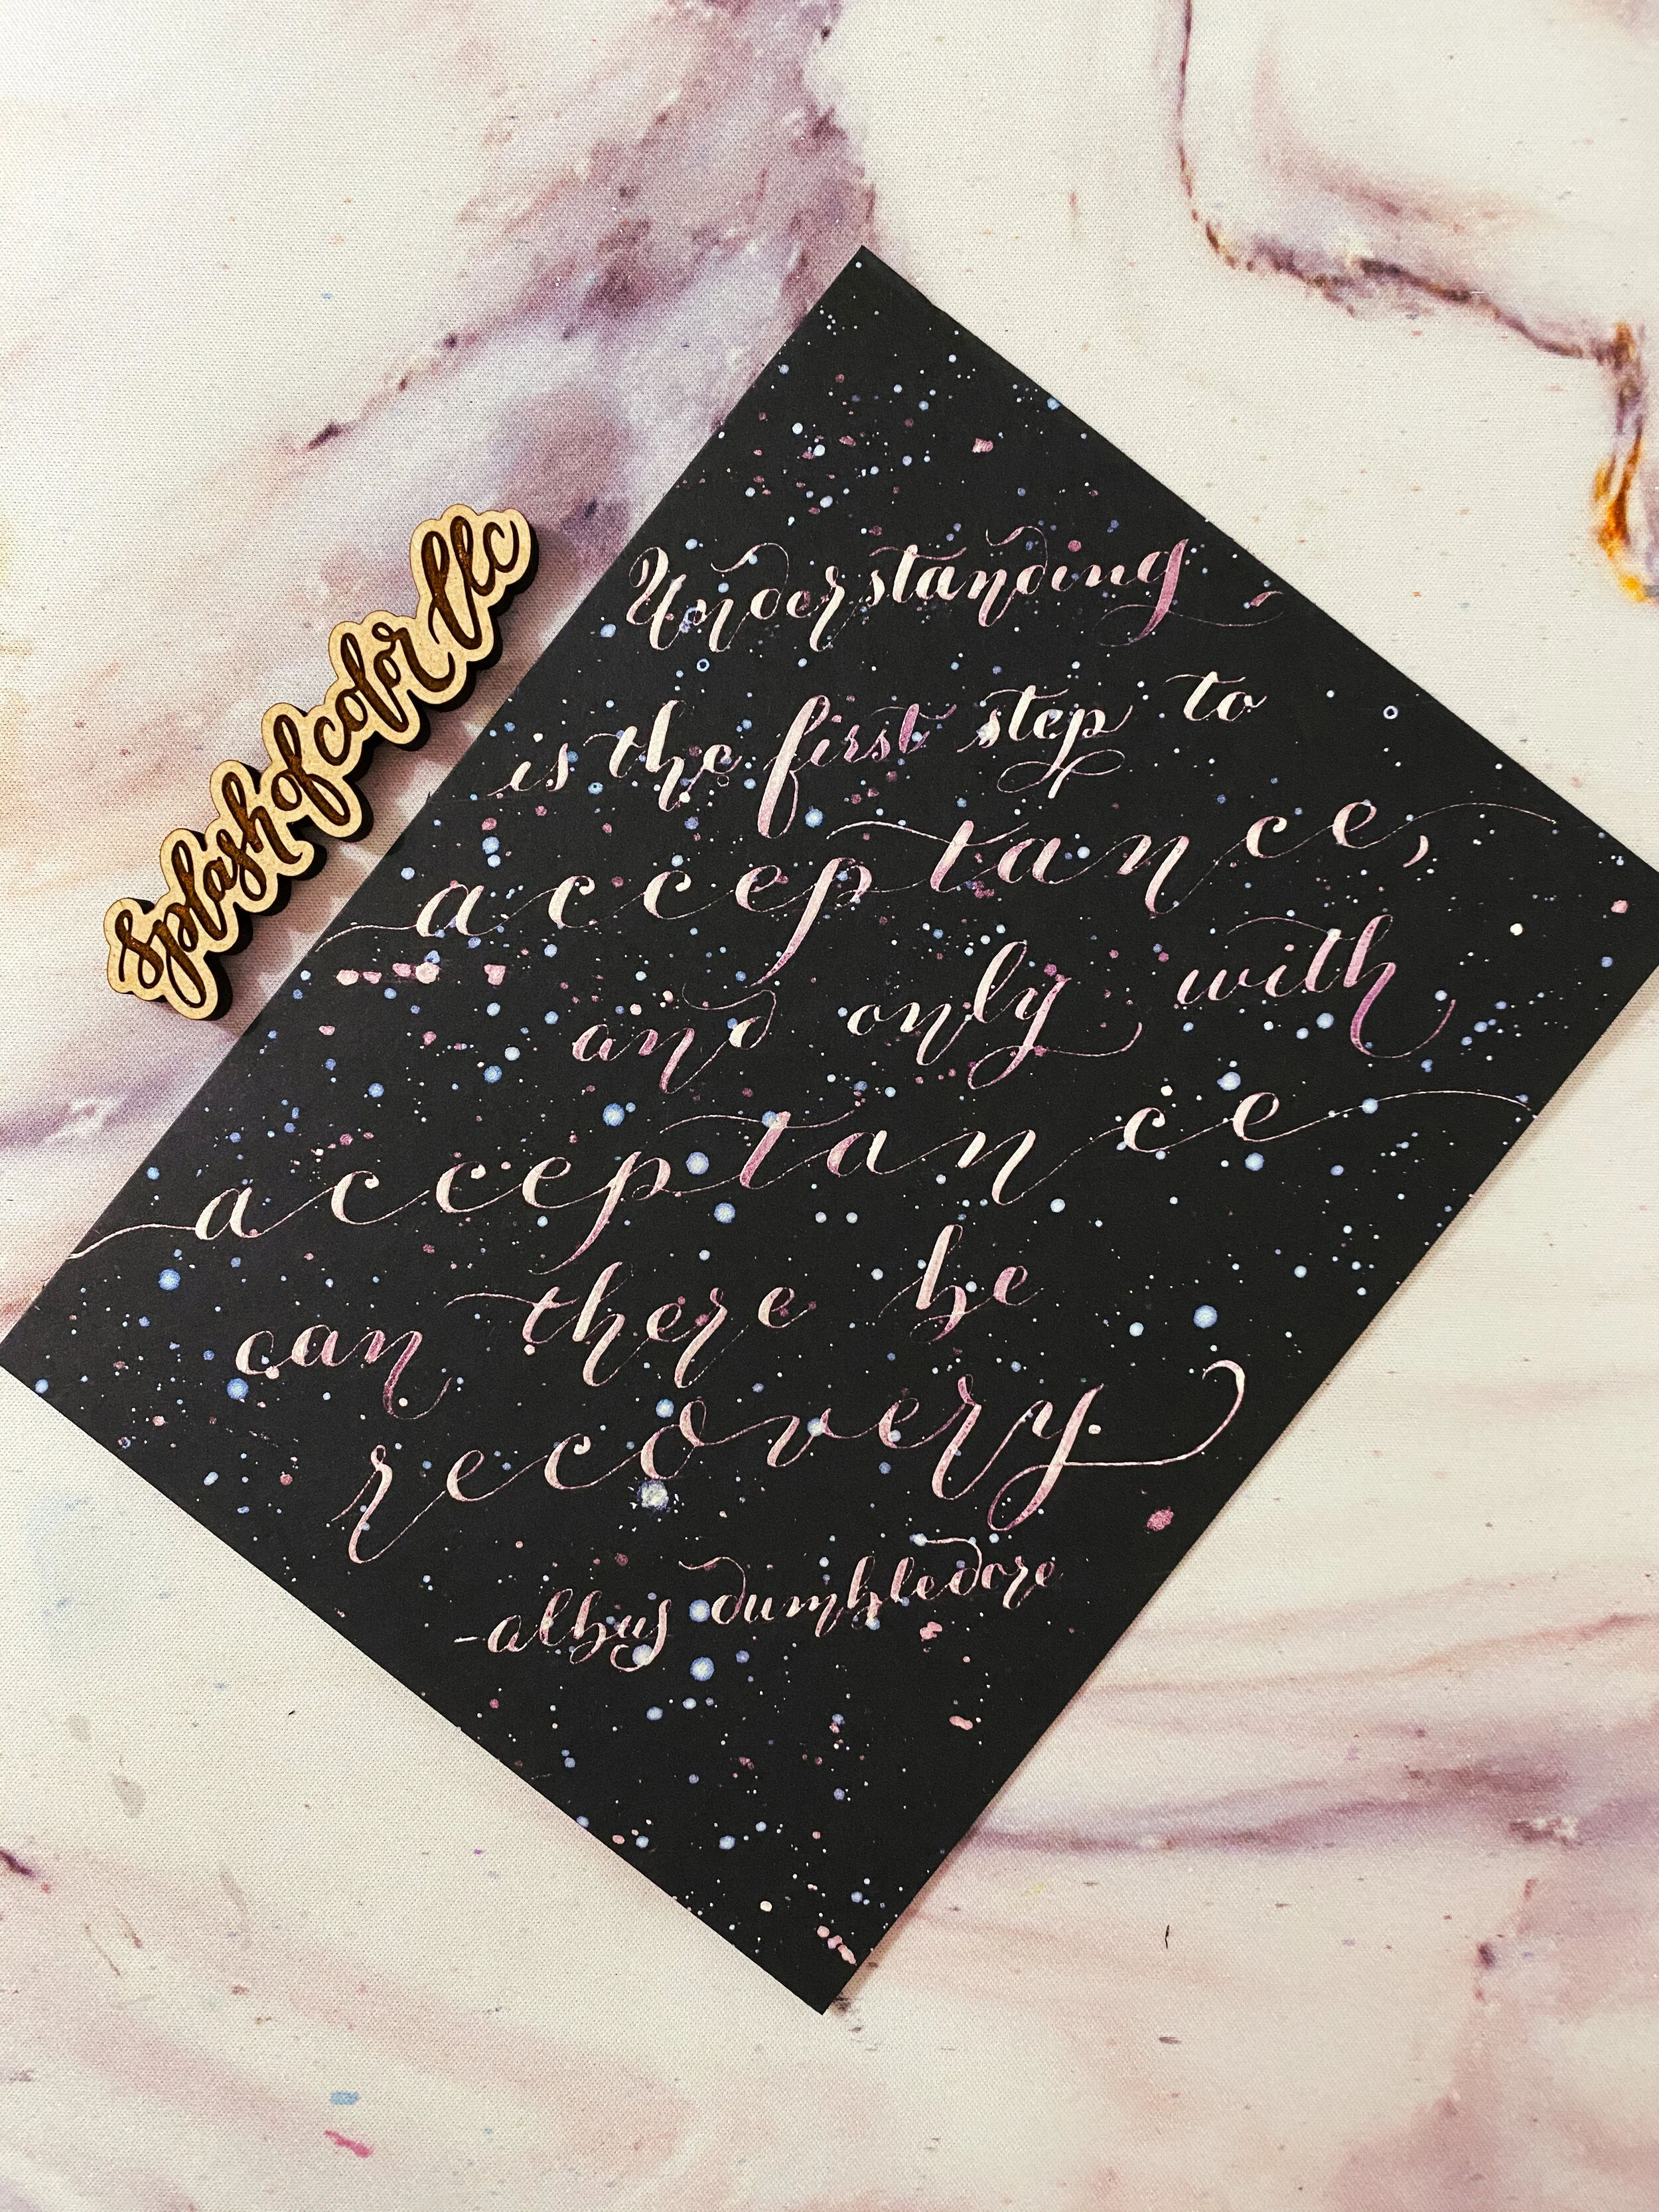 Splashofcolor llc
Understanding
is the first step to
acceptance,
and only with
acceptance
can there be
recovery.
-albus dumbledore